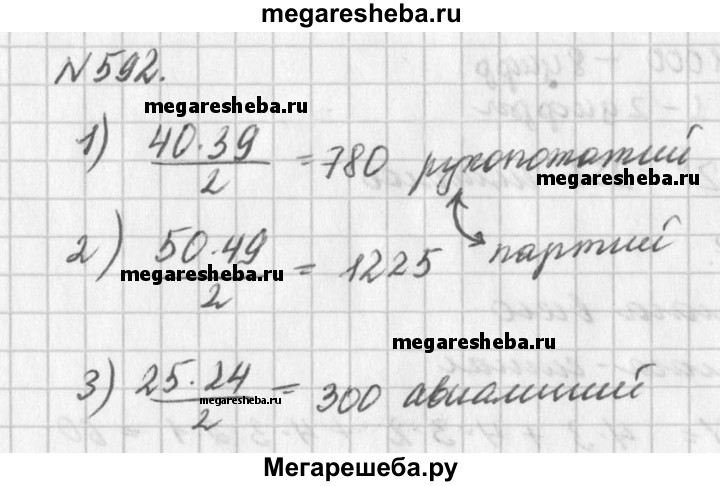 megaresheba.ru
№592.
megaresheba.ru
1) 40·39/2 = 780 рукопожатий
megaresheba.ru
2) 50·49/2 = 1225 партий
megaresheba.ru
megaresheba.ru
3) 25·24/2 = 300 авиалиний
megaresheba.ru
Мегарешеба.ру